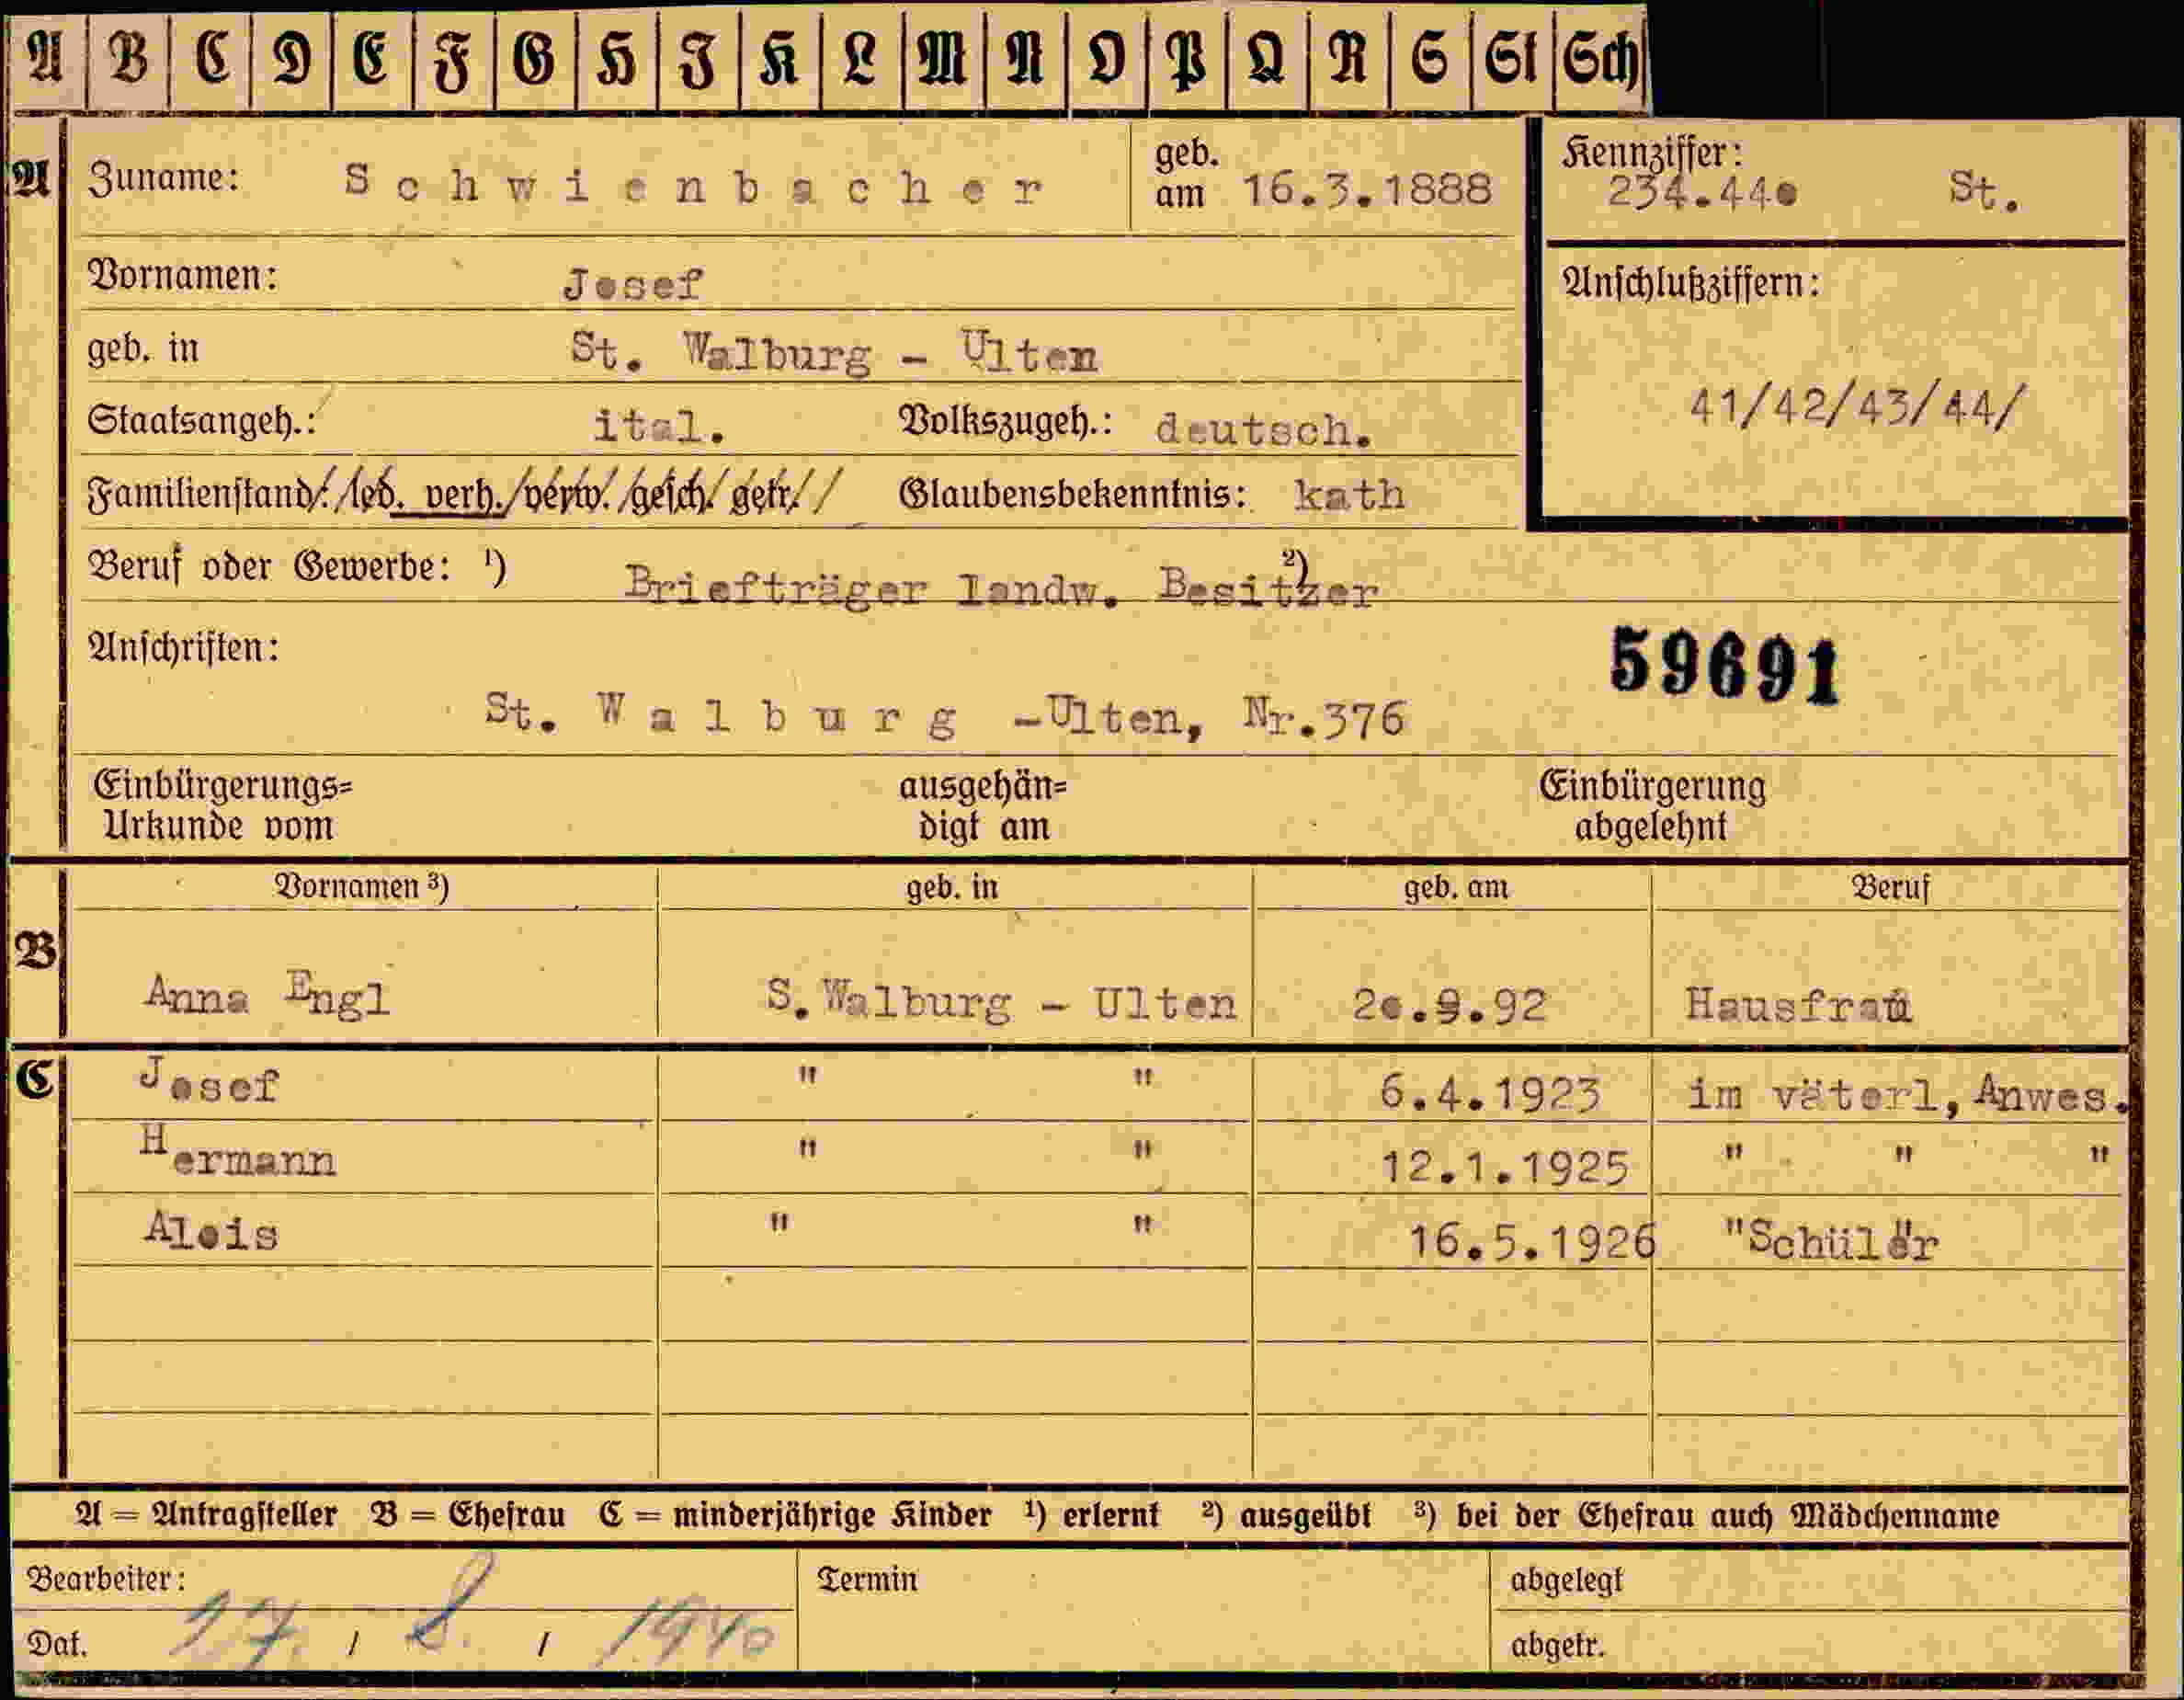 A B C D E F G H J K L M N O P Q R S St Sch
A Zuname: Schwienbacher geb. am 16.3.1888 Kennziffer: 234.440 St.
Vornamen: Josef Anschlußziffern:
geb. in St. Walburg - Ulten
41/42/43/44/
Staatsangeh.: ital. Volkszugeh.: deutsch.
Familienstand: led. verh. verw. gesch. getr. Glaubensbekenntnis: kath
Beruf oder Gewerbe: ¹) Briefträger landw. Besitzer ²)
Anschriften: 59691
St. Walburg -Ulten, Nr.376
Einbürgerungs= ausgehän= Einbürgerung
Urkunde vom digt am abgelehnt
Vornamen ³) geb. in geb. am Beruf
B
Anna Engl S. Walburg - Ulten 20.9.92 Hausfrau
C Josef " " 6.4.1923 im väterl, Anwes.
Hermann " " 12.1.1925 " " "
Alois " " 16.5.1926 "Schüler"
A = Antragsteller B = Ehefrau C = minderjährige Kinder ¹) erlernt ²) ausgeübt ³) bei der Ehefrau auch Mädchenname
Bearbeiter: Termin abgelegt
Dat. 27. / 8. / 1940 abgetr.